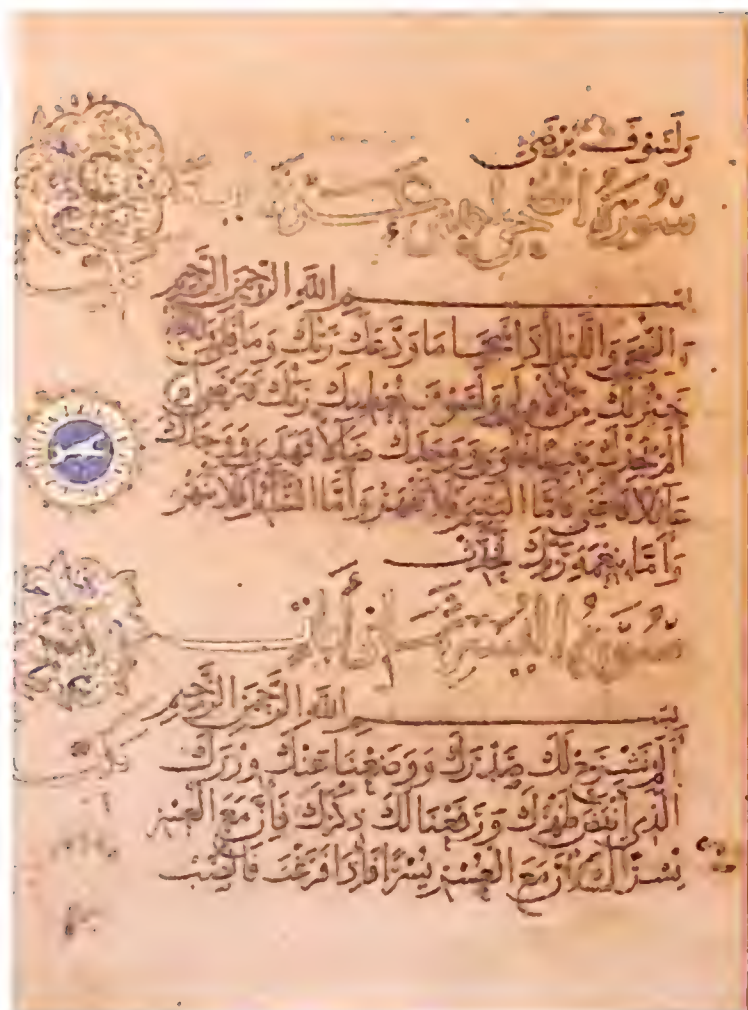 وَلَسَوْفَ يَرْضَى
سُورَةُ الضحى عشرة
بسم اللهِ الرَّحْمَنِ الرَّحِيمِ
وَالضُّحَى وَاللَّيْلِ إِذَا سَجَا مَا وَدَّعَكَ رَبُّكَ وَمَا قَلَى وَلَلْآخِرَةُ
خَيْرٌ لَكَ مِنَ الْأُولَى وَلَسَوْفَ يُعْطِيكَ رَبُّكَ فَتَرْضَى
أَلَمْ يَجِدْكَ يَتِيمًا فَآوَى وَوَجَدَكَ ضَالًّا فَهَدَى وَوَجَدَكَ
عَائِلًا فَأَغْنَى فَأَمَّا الْيَتِيمَ فَلَا تَقْهَرْ وَأَمَّا السَّائِلَ فَلَا تَنْهَرْ
وَأَمَّا بِنِعْمَةِ رَبِّكَ فَحَدِّثْ
سُورَةُ ايات
بسم اللهِ الرَّحْمَنِ الرَّحِيمِ
أَلَمْ نَشْرَحْ لَكَ صَدْرَكَ وَوَضَعْنَا عَنْكَ وِزْرَكَ
الَّذِي أَنْقَضَ ظَهْرَكَ وَرَفَعْنَا لَكَ ذِكْرَكَ فَإِنَّ مَعَ الْعُسْرِ
يُسْرًا إِنَّ مَعَ الْعُسْرِ يُسْرًا فَإِذَا فَرَغْتَ فَانْصَبْ